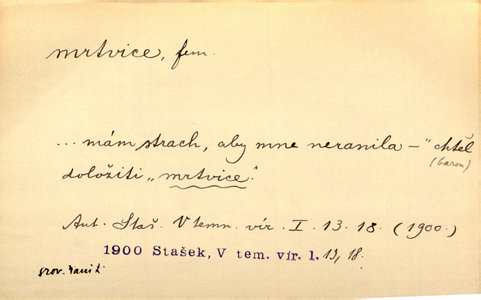 mrtvice, fem.
... mám strach, aby mne neranila –" chtěl
(baron)
doložiti „mrtvice".
Ant. Staš. V temn. vír. I. 13. 18. (1900.)
1900 Stašek, V tem. vír. 1. 13, 18.
srov. raniti